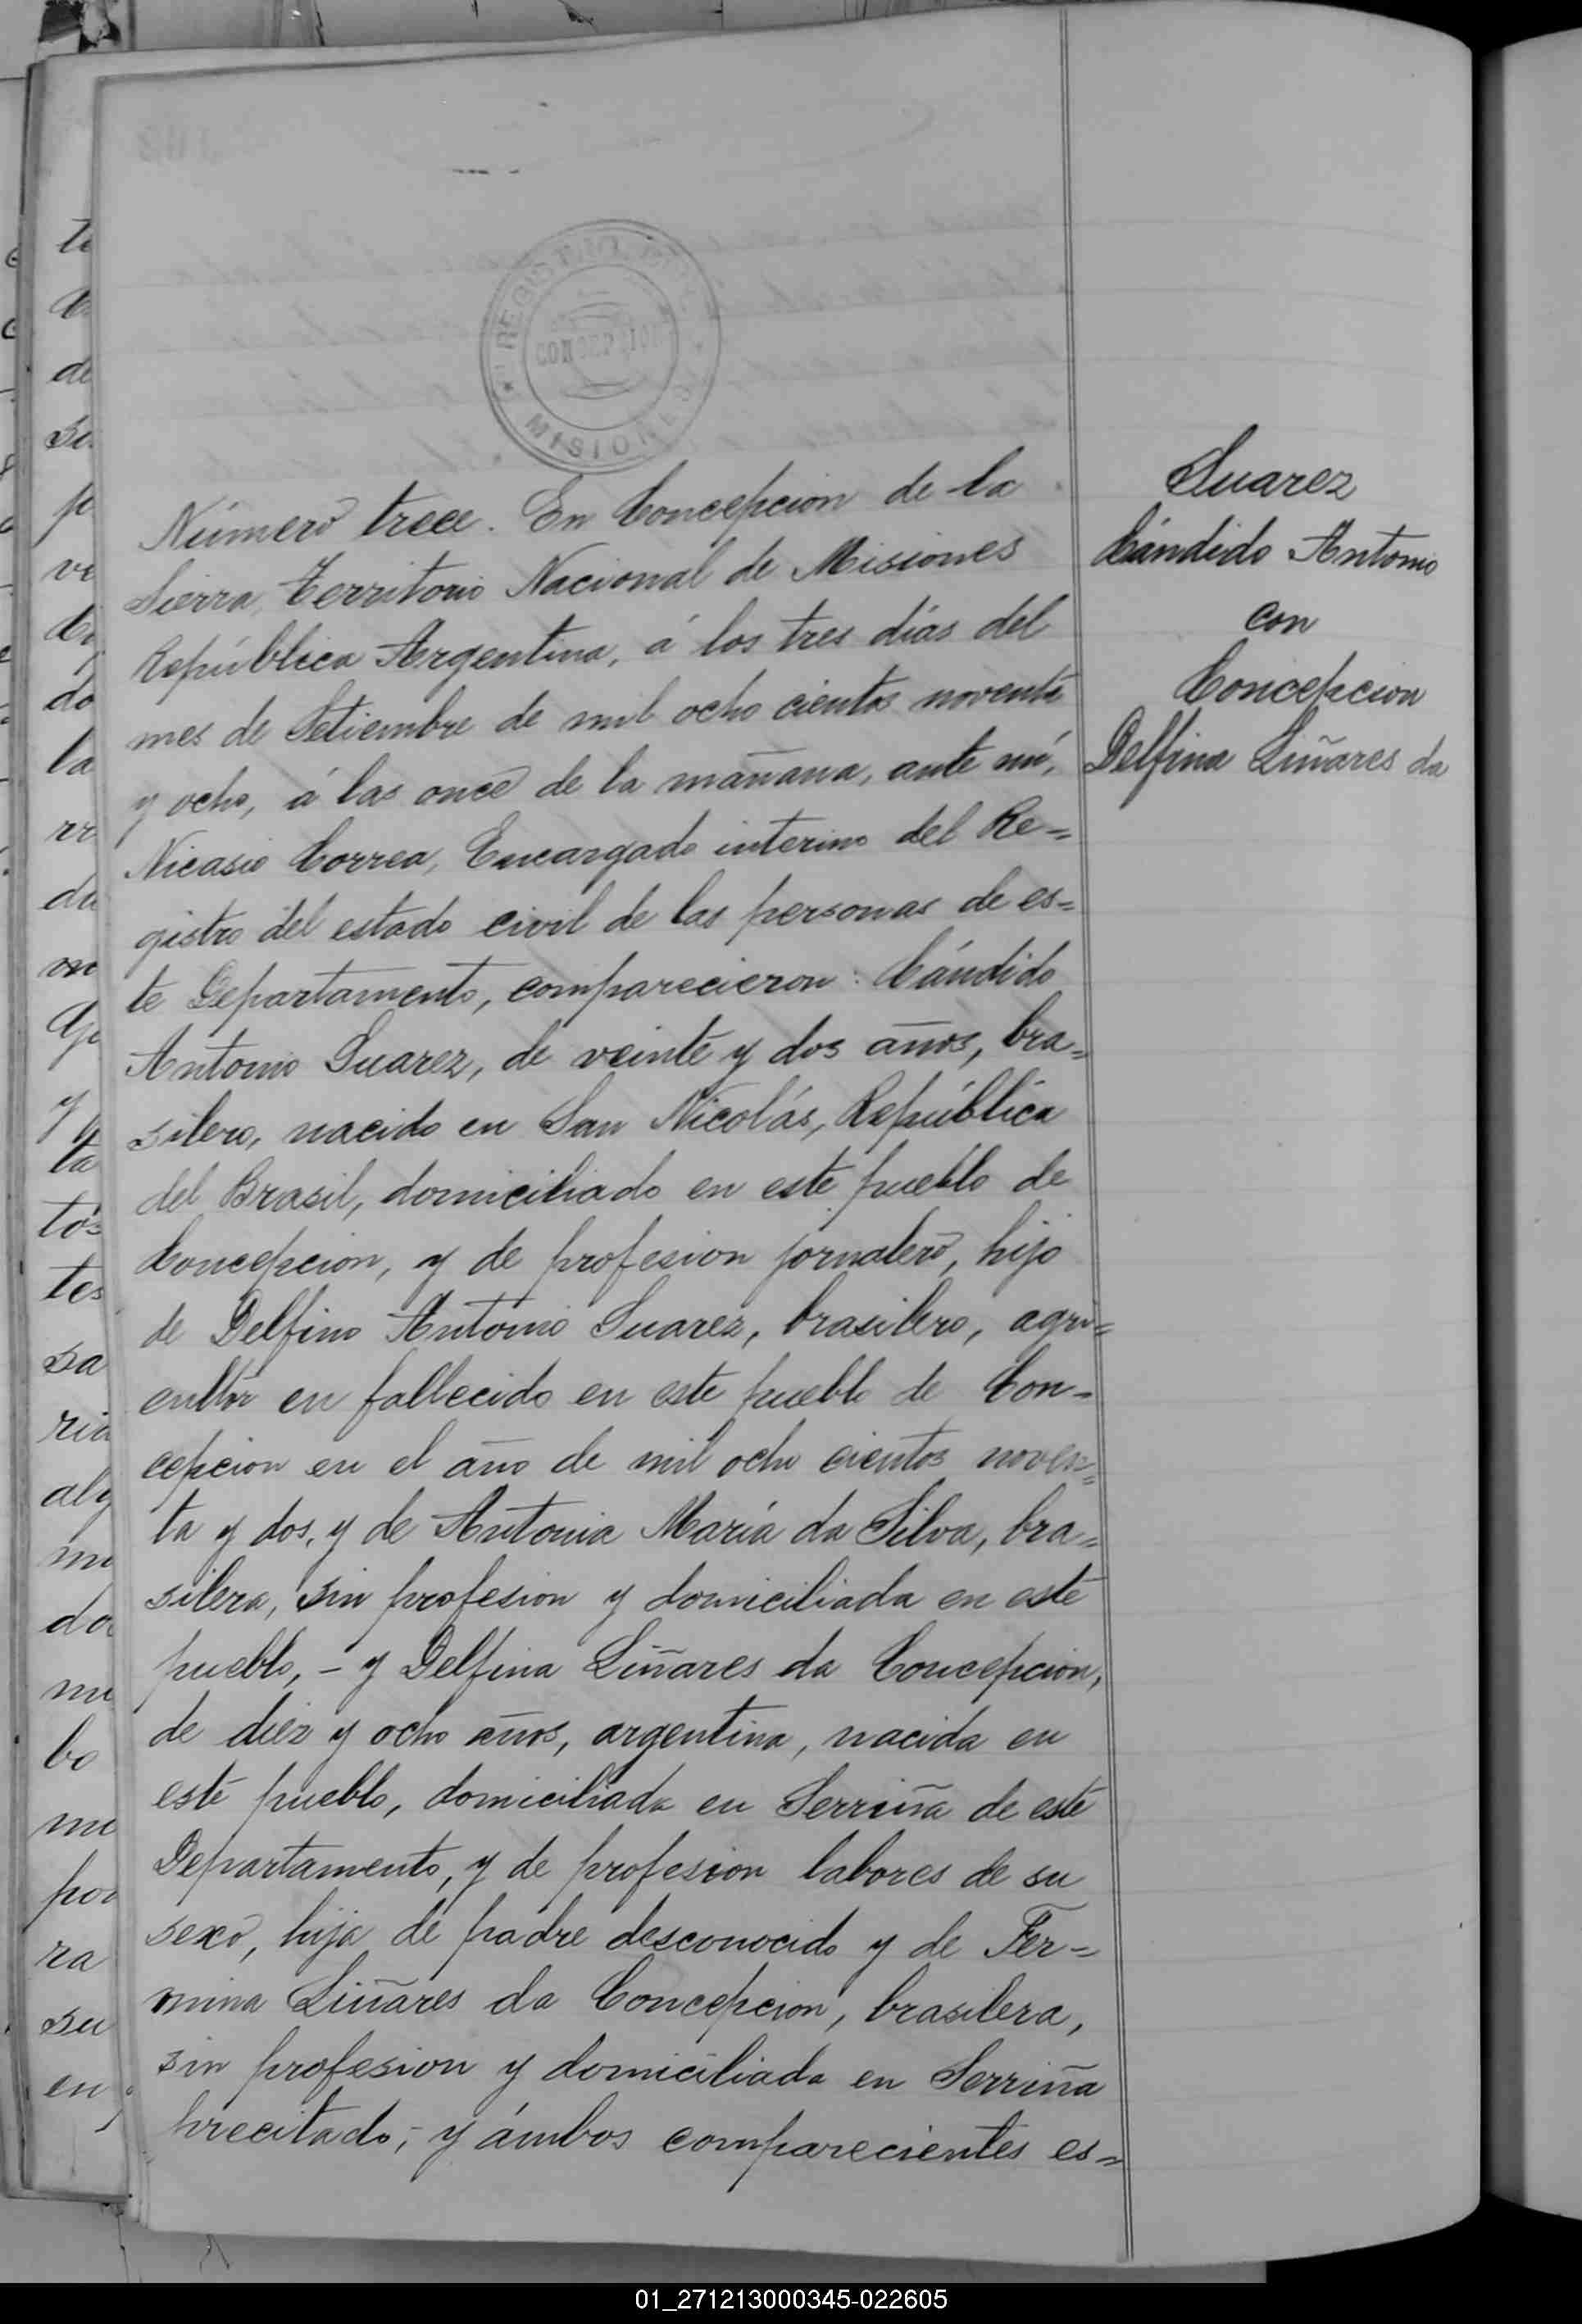 REGISTRO CIVIL
CONCEPCION
MISIONES
Número trece. En Concepcion de la
Sierra, Territorio Nacional de Misiones
República Argentina, á los tres días del
mes de Setiembre de mil ocho cientos noventa
y ocho, á las once de la mañana, ante mí,
Nicasio Correa, Encargado interino del Re=
gistro del estado civil de las personas de es=
te Departamento, comparecieron: Cándido
Antonio Suarez, de veinte y dos años, bra=
silero, nacido en San Nicolás, República
del Brasil, domiciliado en este pueblo de
Concepcion, y de profesion jornalero, hijo
de Delfino Antonio Suarez, brasilero, agri=
cultor en fallecido en este pueblo de Con=
cepcion en el año de mil ocho cientos noven=
ta y dos, y de Antonia María da Silva, bra=
silera, sin profesion y domiciliada en este
pueblo, - y Delfina Liñares da Concepcion,
de diez y ocho años, argentina, nacida en
este pueblo, domiciliada en Serriña de este
Departamento, y de profesion labores de su
sexo, hija de padre desconocido y de Fer=
mina Liñares da Concepcion, brasilera,
sin profesion y domiciliada en Serriña
precitado; y ámbos comparecientes es=
Suarez
Cándido Antonio
con
Concepcion
Delfina Liñares da
01_271213000345-022605